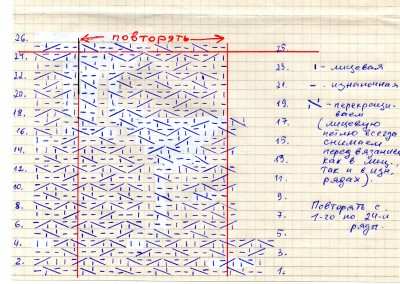 повторять
26.
25.
24.
23.
ı - лицевая
22.
21.
- - изнаночная
20.
19.
- перекрещи-
ваем
18.
17.
(лицевую
16.
петлю всегда
15.
снимаем
14.
перед вязанием
13.
как в лиц.
12.
так и в изн.
11.
рядах).
10.
9.
Повторять с
8.
7.
1-го по 24-й
ряд.
6.
5.
4.
3.
2.
1.